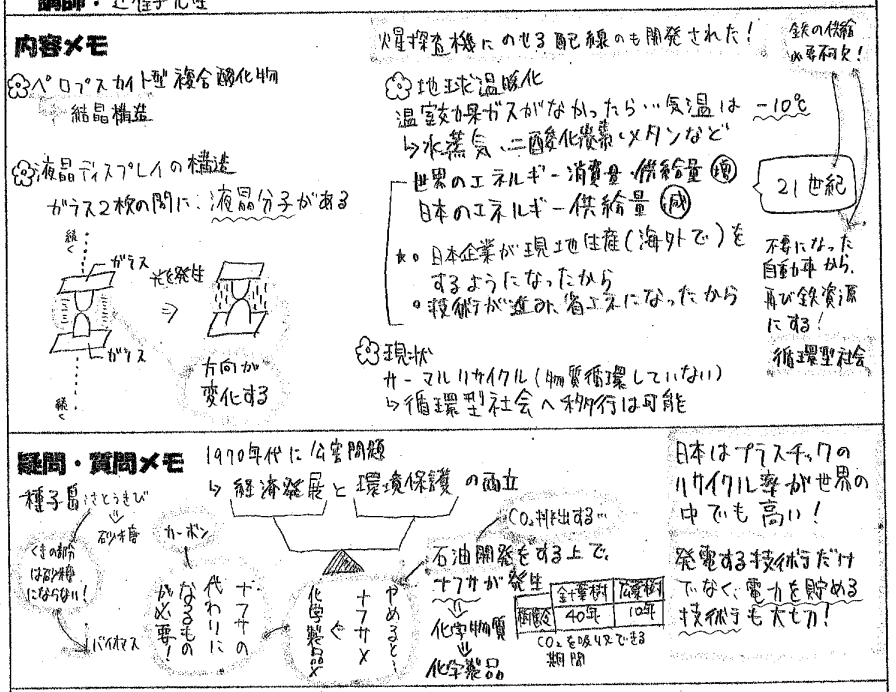 講師・辻佳子先生
内容メモ
ペロブスカイト型複合酸化物
結晶構造
液晶ディスプレイの構造
ガラス2枚の間に:液晶分子がある
続く
ガラス
光を発生
⇒
ガラス
続く
方向が
変化する
火星探査機にのせる配線のも開発された!
地球温暖化
温室効果ガスがなかったら…気温は -10℃
↳水蒸気、二酸化炭素、メタンなど
世界のエネルギー消費量・供給量 増
日本のエネルギー供給量 減
★・日本企業が現地生産(海外で)を
するようになったから
・技術が進み、省エネになったから
現状
サーマルリサイクル(物質循環していない)
↳循環型社会へ移行は可能
鉄の供給
必要不可欠!
21世紀
不要になった
自動車から、
再び鉄資源
にする!
循環型社会
疑問・質問メモ
1970年代に公害問題
↳経済発展と環境保護の両立
種子島 さとうきび
⇓
砂糖
くきの部分
は砂糖
にならない!
バイオマス
カーボン
ナフサの
代わりに
なるもの
が必要!
CO₂排出する…
やめると…
ナフサ×
化学製品×
石油開発をする上で、
ナフサが発生
⇓
化学物質
⇓
化学製品
針葉樹 広葉樹
樹齢 40年 10年
CO₂を吸収できる
期間
日本はプラスチックの
リサイクル率が世界の
中でも高い!
発電する技術だけ
でなく、電力を貯める
技術も大切!